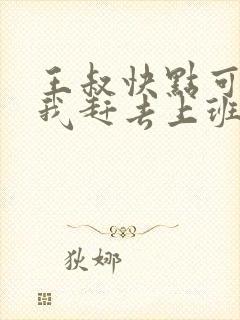 王叔快點可
我赶去上班
狄娜